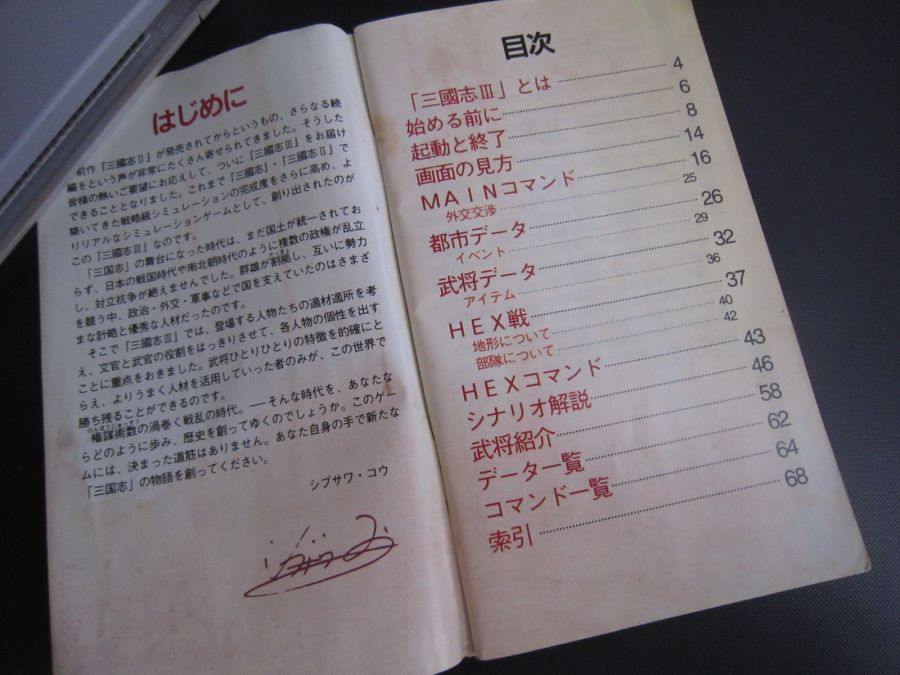 はじめに
前作「三國志Ⅱ」が発売されてからというもの、さらなる続
編をという声が非常にたくさん寄せられてきました。そうした
皆様の熱いご要望にお応えして、ついに「三國志Ⅲ」をお届け
できることとなりました。これまで「三國志」・「三國志Ⅱ」で
築いてきた戦略級シミュレーションの完成度をさらに高め、よ
りリアルなシミュレーションゲームとして、創り出されたのが
この「三國志Ⅲ」なのです。
「三国志」の舞台になった時代は、まだ国土が統一されてお
らず、日本の戦国時代や南北朝時代のように複数の政権が乱立
し、対立抗争が絶えませんでした。群雄が割拠し、互いに勢力
を競う中、政治・外交・軍事などで国を支えていたのはさまざ
まな計略と優秀な人材だったのです。
そこで「三國志Ⅲ」では、登場する人物たちの適材適所を考
え、文官と武官の役割をはっきりさせて、各人物の個性を出す
ことに重点をおきました。武将ひとりひとりの特徴を的確にと
らえ、よりうまく人材を活用していった者のみが、この世界で
勝ち残ることができるのです。
権謀術数の渦巻く戦乱の時代。――そんな時代を、あなたな
らどのように歩み、歴史を創ってゆくのでしょうか。このゲー
ムには、決まった道筋はありません。あなた自身の手で新たな
「三国志」の物語を創ってください。
シブサワ・コウ
目次
「三國志Ⅲ」とは 4
始める前に 6
起動と終了 8
画面の見方 14
MAINコマンド 16
外交交渉 25
都市データ 26
イベント 29
武将データ 32
アイテム 36
HEX戦 37
地形について 40
部隊について 42
HEXコマンド 43
シナリオ解説 46
武将紹介 58
データ一覧 62
コマンド一覧 64
索引 68